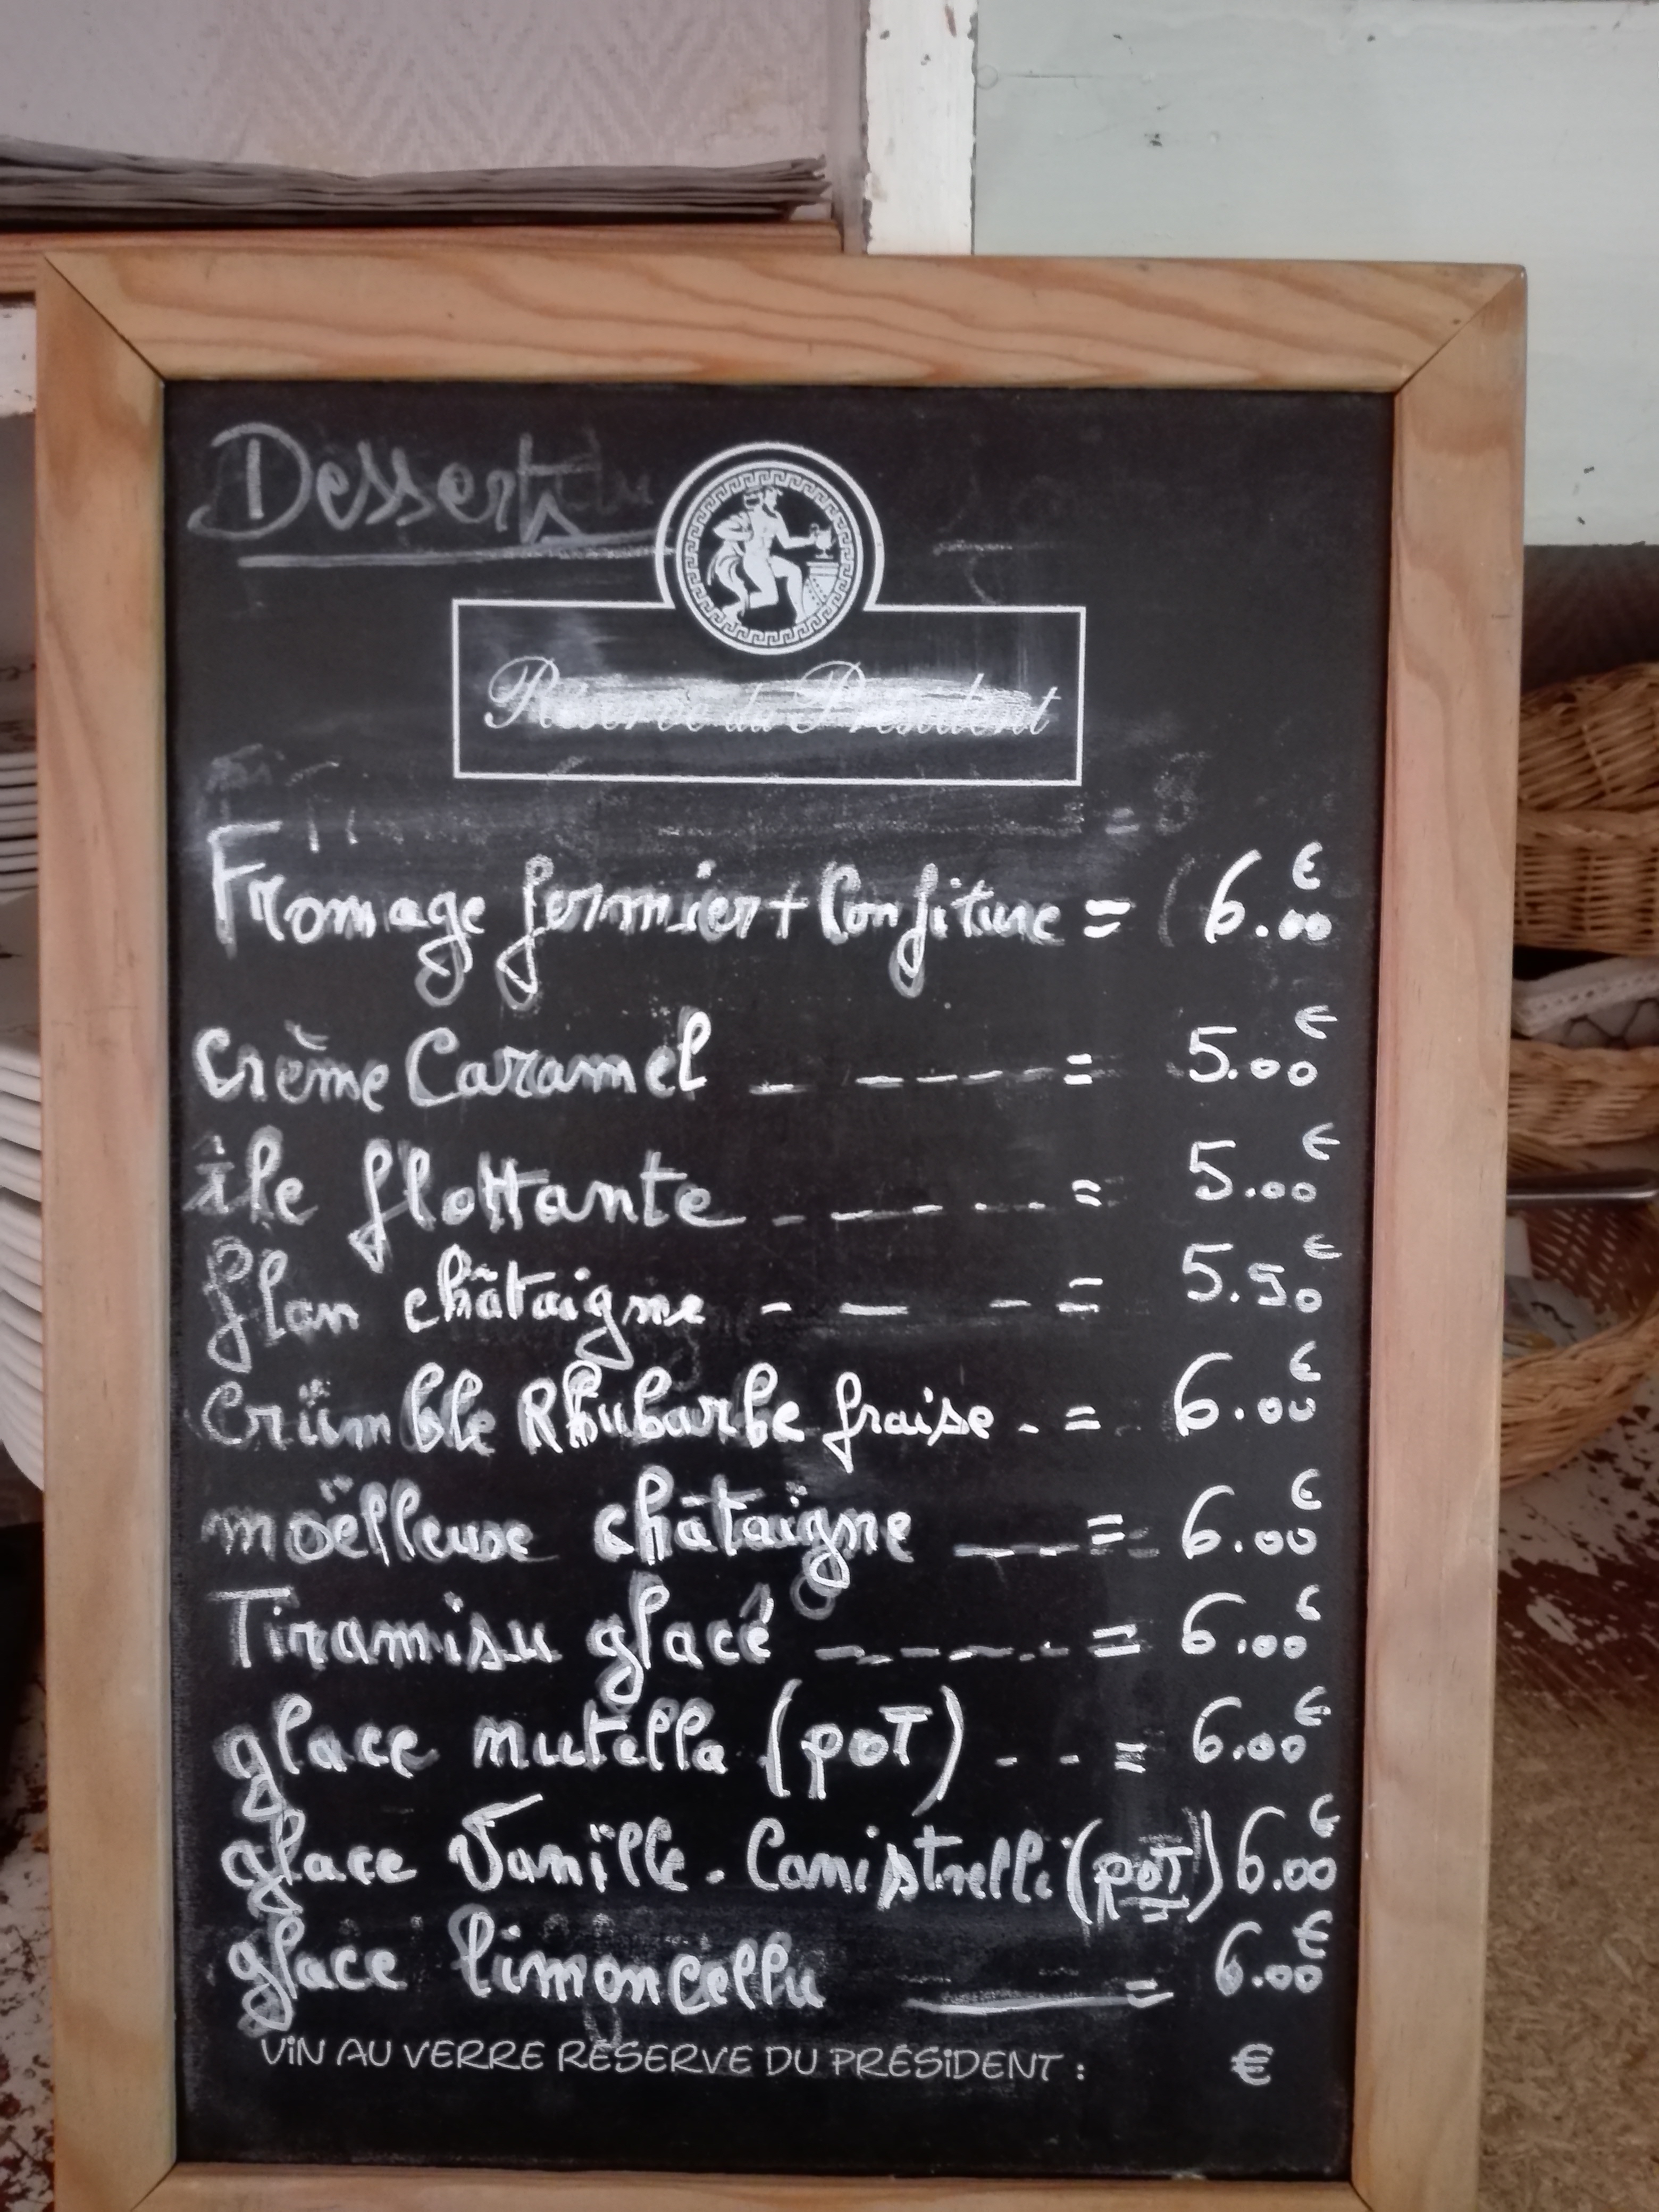 Desserts
Réserve du Président
Fromage fermier + Confiture = 6.00€
Crème Caramel _ _ _ _ _ = 5.00€
île flottante _ _ _ _ _ = 5.00€
flan châtaigne - - - = 5.50€
Crümble Rhubarbe fraise . = 6.00€
moëlleuse châtaigne _ _ _ = 6.00€
Tiramisu glacé _ _ _ _ _ = 6.00€
glace nutella (poT) - - = 6.00€
glace Vanïlle . Canistrelli (poT) 6.00€
glace limoncellu ____ = 6.00€
ViN AU VERRE RÉSERVE DU PRÉSiDENT : €